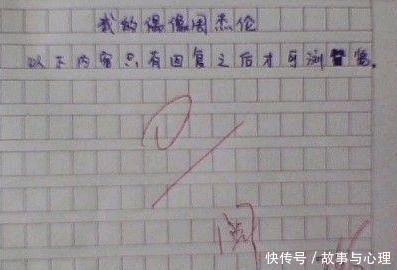 我的偶像周杰伦
以下内容只有回复之后才可浏览。
阅
快传号／故事与心理